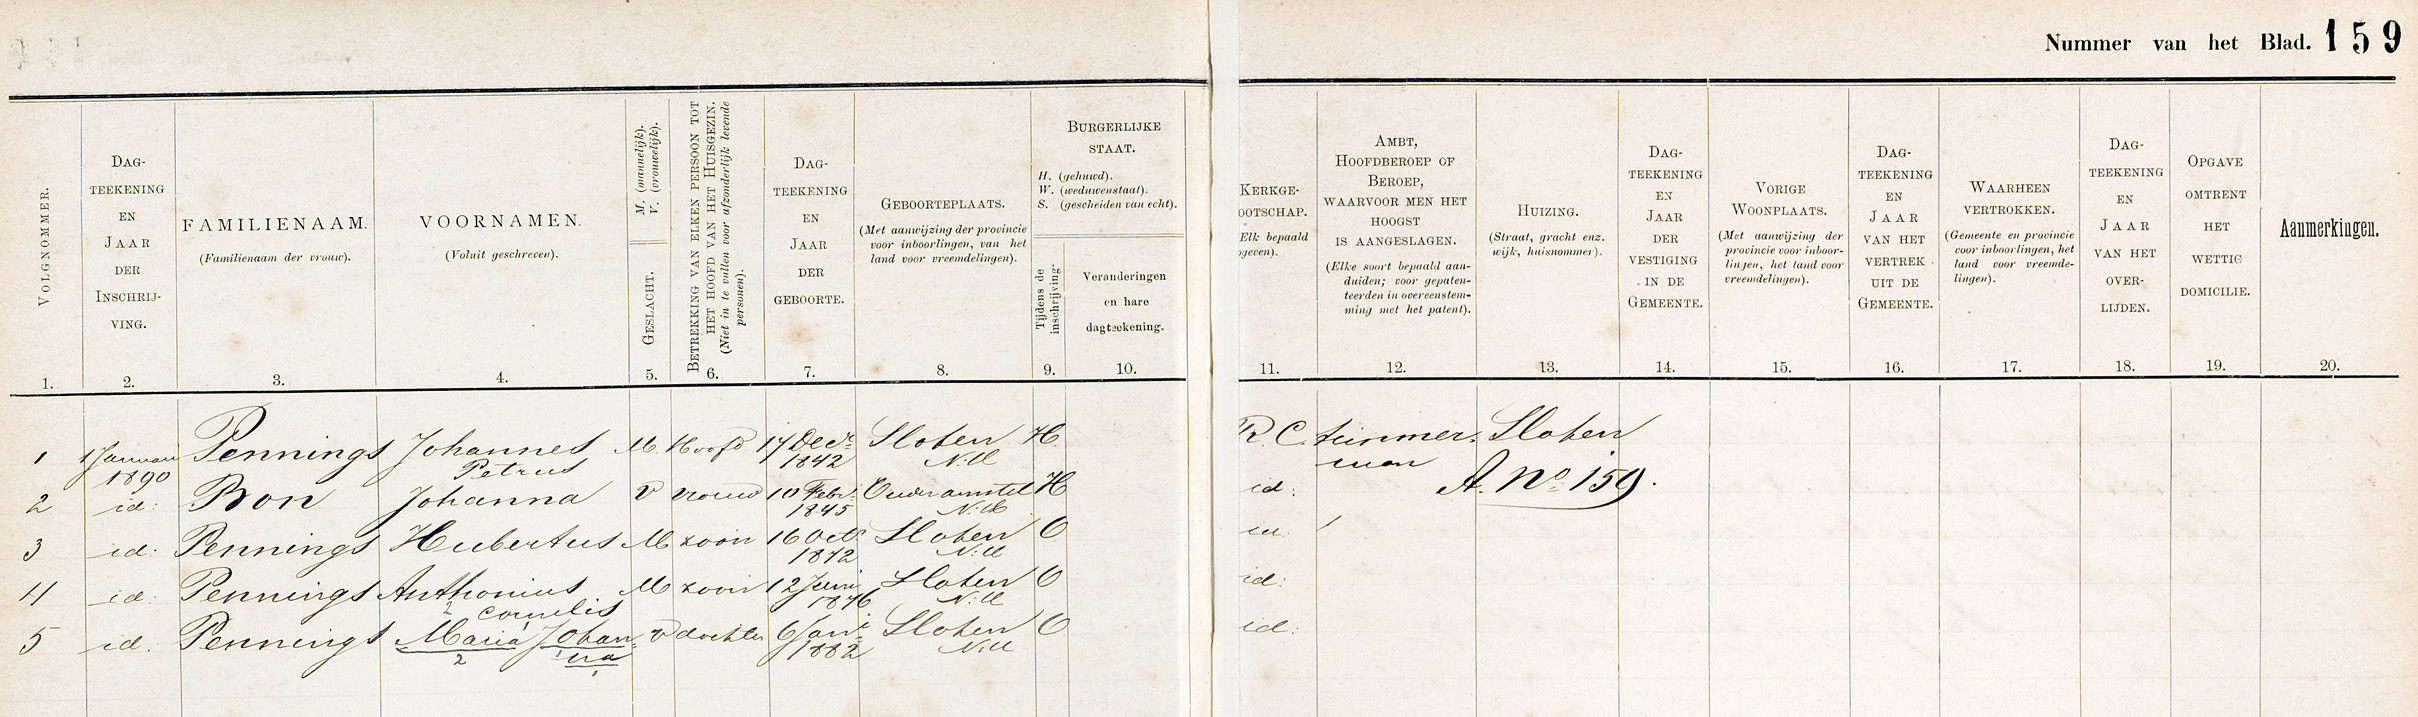 Nummer van het Blad. 159
VOLGNOMMER.
1.
DAG-
TEEKENING
EN
JAAR
DER
INSCHRIJ-
VING.
2.
FAMILIENAAM.
(Familienaam der vrouw).
3.
VOORNAMEN.
(Voluit geschreven).
4.
M. (mannelijk).
V. (vrouwelijk).
GESLACHT.
5.
BETREKKING VAN ELKEN PERSOON TOT
HET HOOFD VAN HET HUISGEZIN.
(Niet in te vullen voor afzonderlijk levende
personen).
6.
DAG-
TEEKENING
EN
JAAR
DER
GEBOORTE.
7.
GEBOORTEPLAATS.
(Met aanwijzing der provincie
voor inboorlingen, van het
land voor vreemdelingen).
8.
BURGERLIJKE
STAAT.
H. (gehuwd).
W. (weduwenstaat).
S. (gescheiden van echt).
Tijdens de
inschrijving.
9.
Veranderingen
en hare
dagteekening.
10.
KERKGE-
OOTSCHAP.
Elk bepaald
geven).
11.
AMBT,
HOOFDBEROEP OF
BEROEP,
WAARVOOR MEN HET
HOOGST
IS AANGESLAGEN.
(Elke soort bepaald aan-
duiden; voor gepaten-
teerden in overeenstem-
ming met het patent).
12.
HUIZING.
(Straat, gracht enz.
wijk, huisnommer).
13.
DAG-
TEEKENING
EN
JAAR
DER
VESTIGING
IN DE
GEMEENTE.
14.
VORIGE
WOONPLAATS.
(Met aanwijzing der
provincie voor inboor-
lingen, het land voor
vreemdelingen).
15.
DAG-
TEEKENING
EN
JAAR
VAN HET
VERTREK
UIT DE
GEMEENTE.
16.
WAARHEEN
VERTROKKEN.
(Gemeente en provincie
voor inboorlingen, het
land voor vreemde-
lingen).
17.
DAG-
TEEKENING
EN
JAAR
VAN HET
OVER-
LIJDEN.
18.
OPGAVE
OMTRENT
HET
WETTIG
DOMICILIE.
19.
Aanmerkingen.
20.
1 1 Januari Pennings Johannes M Hoofd 17 Decr Sloten H. R.C. timmer. Sloten
1890 Petrus 1842 N.H. man A. No 159.
2 id: Bon Johanna V vrouw 10 Febr. Ouderamstel H id:
1845 N.H.
3 id: Pennings Hubertus M zoon 16 Oct Sloten O id
1872 N.H.
4 id: Pennings Anthonius M zoon 12 Juni Sloten O id:
2 Cornelis 1876 N.H.
5 id. Pennings Maria Johan- V dochter 6 Jani Sloten O id:
2 na 1882 N.H.
1